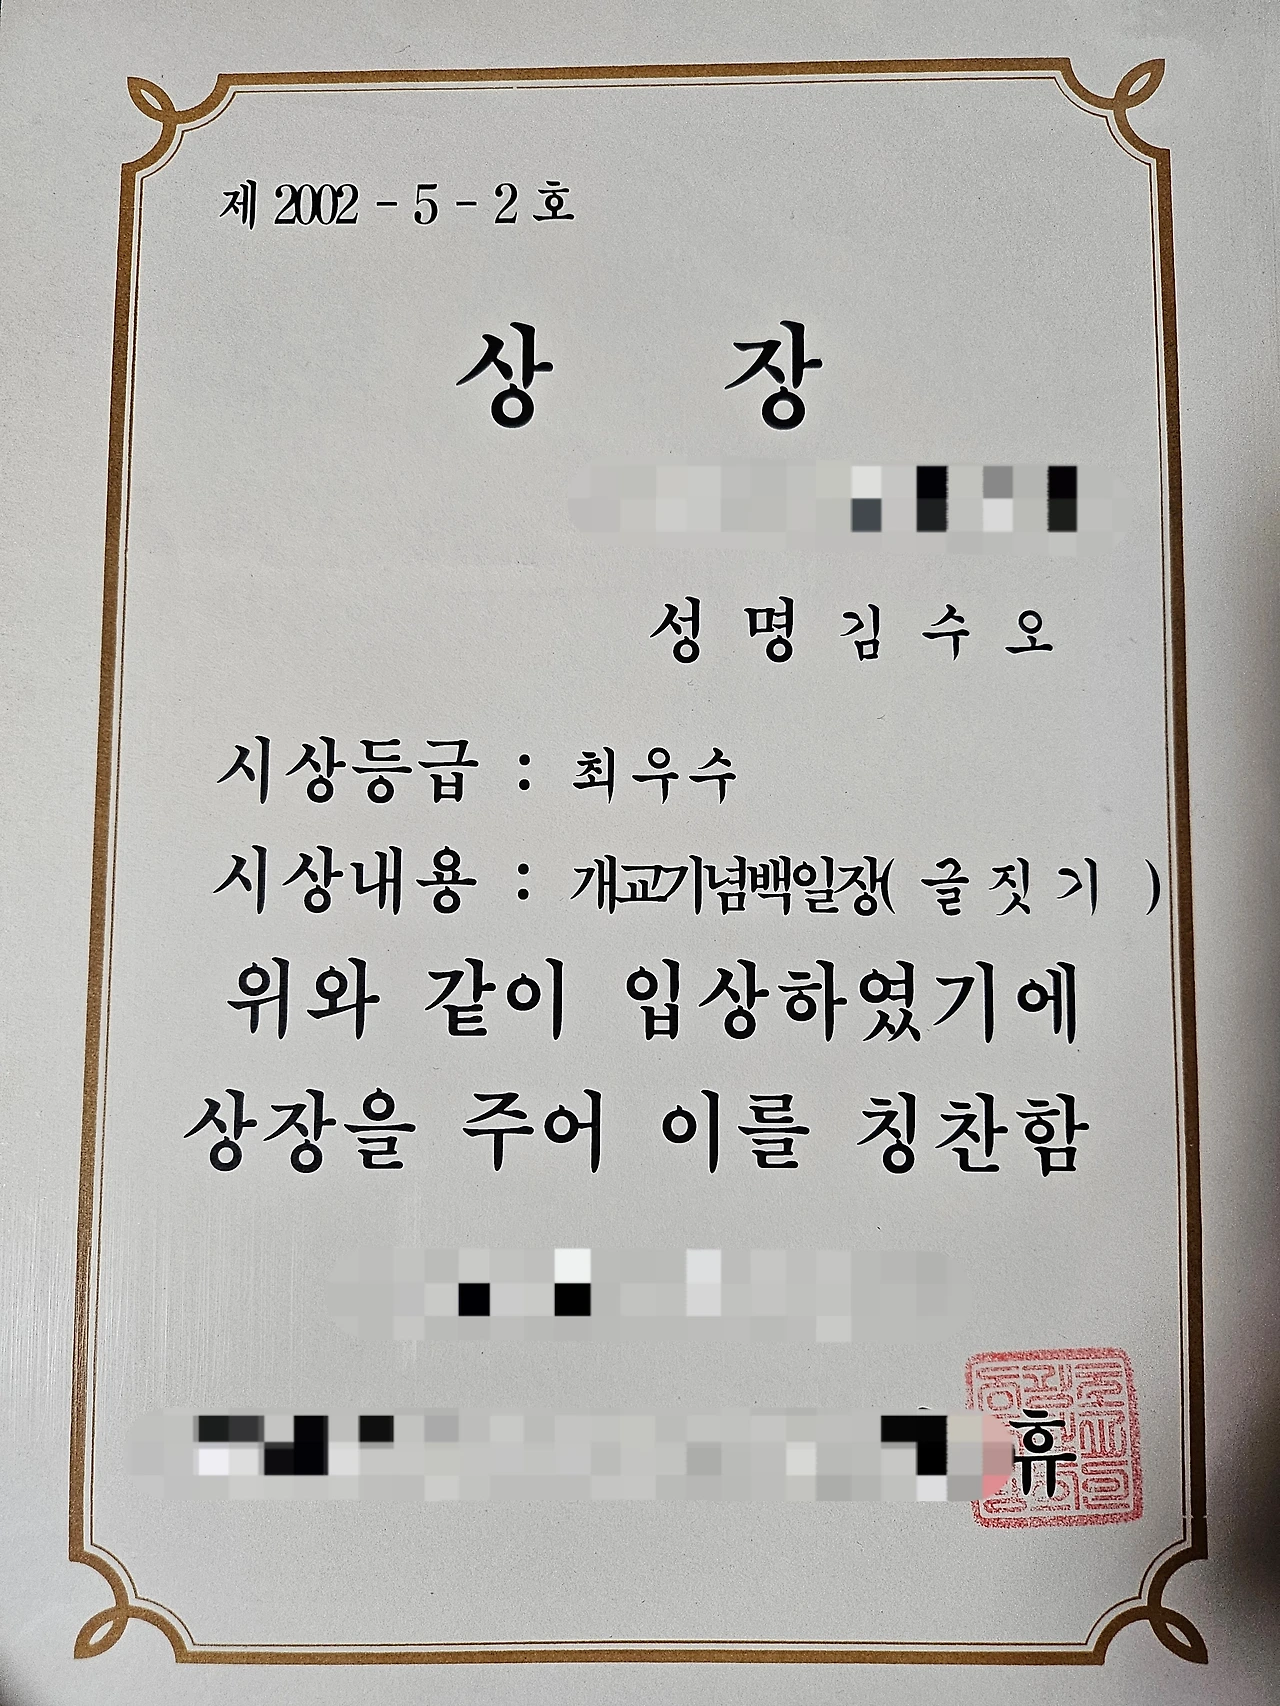 제 2002 - 5 - 2 호
상 장
성 명 김 수 오
시상등급 : 최우수
시상내용 : 개교기념백일장( 글 짓 기 )
위와 같이 입상하였기에
상장을 주어 이를 칭찬함
휴